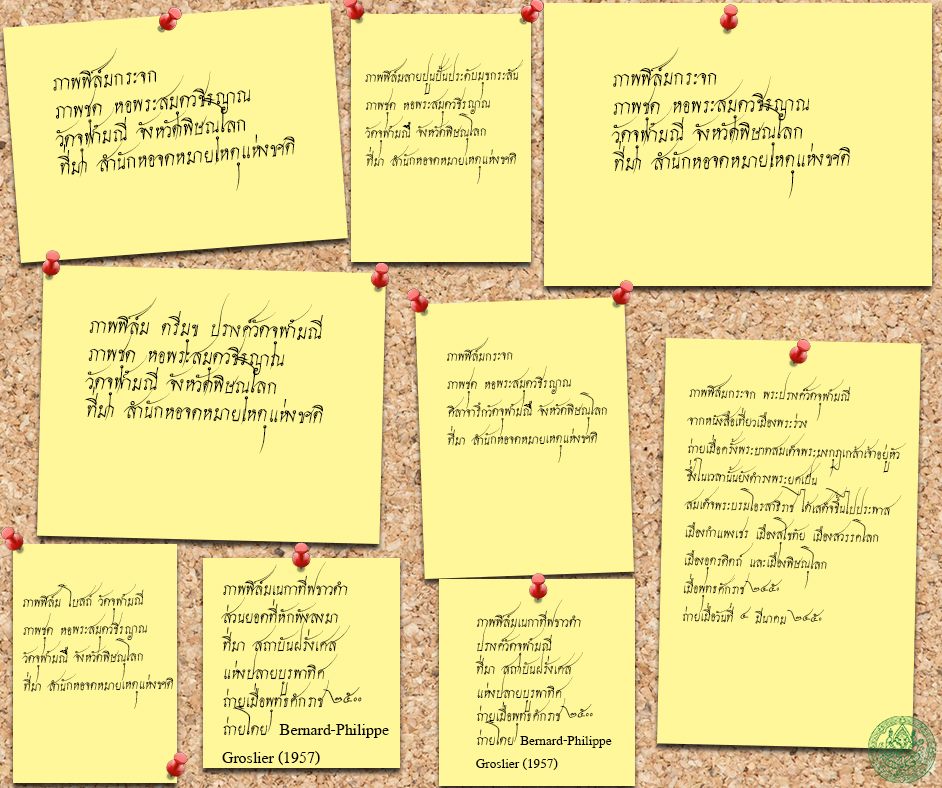 ภาพฟิล์มกระจก
ภาพชุด หอพระสมุดวชิรญาณ
วัดจุฬามณี จังหวัดพิษณุโลก
ที่มา สำนักหอจดหมายเหตุแห่งชาติ
ภาพฟิล์มลายปูนปั้นประดับมุขกระสัน
ภาพชุด หอพระสมุดวชิรญาณ
วัดจุฬามณี จังหวัดพิษณุโลก
ที่มา สำนักหอจดหมายเหตุแห่งชาติ
ภาพฟิล์มกระจก
ภาพชุด หอพระสมุดวชิรญาณ
วัดจุฬามณี จังหวัดพิษณุโลก
ที่มา สำนักหอจดหมายเหตุแห่งชาติ
ภาพฟิล์ม ตรีมุข ปรางค์วัดจุฬามณี
ภาพชุด หอพระสมุดวชิรญาณ
วัดจุฬามณี จังหวัดพิษณุโลก
ที่มา สำนักหอจดหมายเหตุแห่งชาติ
ภาพฟิล์มกระจก
ภาพชุด หอพระสมุดวชิรญาณ
ศิลาจารึกวัดจุฬามณี จังหวัดพิษณุโลก
ที่มา สำนักหอจดหมายเหตุแห่งชาติ
ภาพฟิล์มกระจก พระปรางค์วัดจุฬามณี
จากหนังสือเที่ยวเมืองพระร่วง
ถ่ายเมื่อครั้งพระบาทสมเด็จพระมงกุฎเกล้าเจ้าอยู่หัว
ซึ่งในเวลานั้นยังดำรงพระยศเป็น
สมเด็จพระบรมโอรสาธิราช ได้เสด็จขึ้นไปประพาส
เมืองกำแพงเพชร เมืองสุโขทัย เมืองสวรรคโลก
เมืองอุตรดิตถ์ และเมืองพิษณุโลก
เมื่อพุทธศักราช ๒๔๕๐
ถ่ายเมื่อวันที่ ๔ มีนาคม ๒๔๕๐
ภาพฟิล์ม โบสถ์ วัดจุฬามณี
ภาพชุด หอพระสมุดวชิรญาณ
วัดจุฬามณี จังหวัดพิษณุโลก
ที่มา สำนักหอจดหมายเหตุแห่งชาติ
ภาพฟิล์มเนกาทีฟขาวดำ
ส่วนยอดที่หักพังลงมา
ที่มา สถาบันฝรั่งเศส
แห่งปลายบูรพาทิศ
ถ่ายเมื่อพุทธศักราช ๒๕๐๐
ถ่ายโดย Bernard-Philippe
Groslier (1957)
ภาพฟิล์มเนกาทีฟขาวดำ
ปรางค์วัดจุฬามณี
ที่มา สถาบันฝรั่งเศส
แห่งปลายบูรพาทิศ
ถ่ายเมื่อพุทธศักราช ๒๕๐๐
ถ่ายโดย Bernard-Philippe
Groslier (1957)